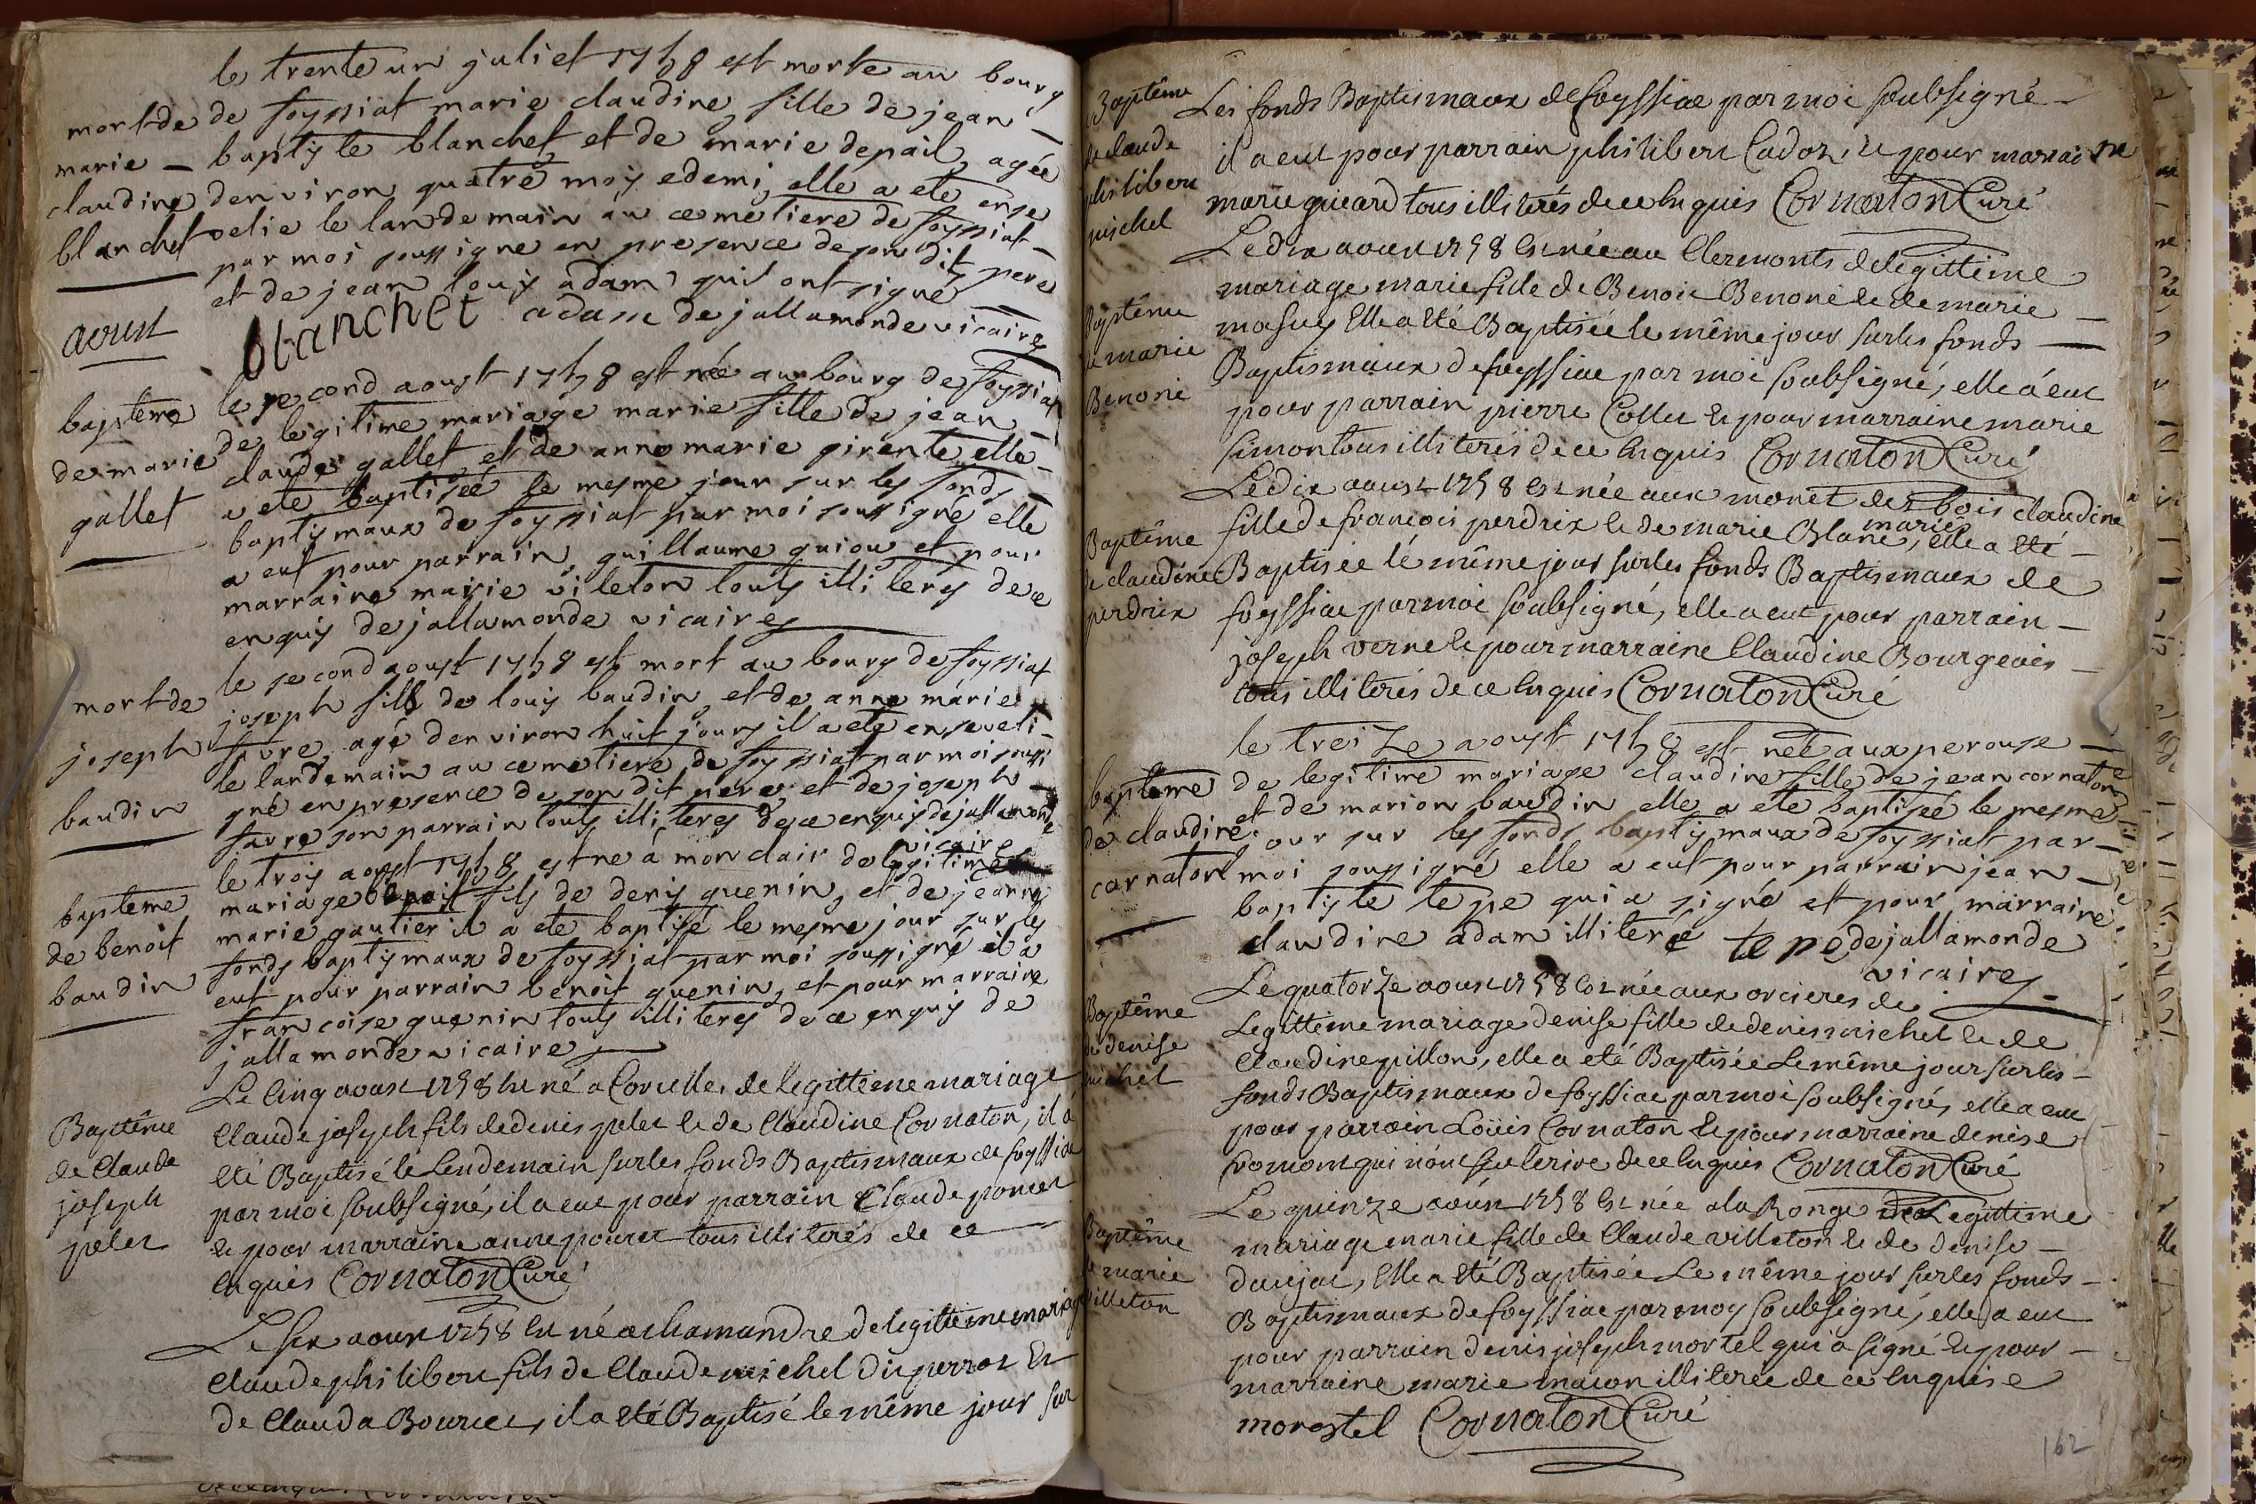 le trente un juliet 1758 est morte au bourg
mort de de foyssiat marie claudine fille de jean
marie baptiste blanchet et de marie depail agée
claudine denviron quatre moys edemi, elle a eté enseu
blanchet velie le landemain au cemetiere de foyssiat
par moi soussigne en presence de son dit pere
et de jean louys adam qui ont signé
aoust
blanchet adam de jallamonde vicaire
bapteme le second aoust 1758 est née au bourg de foyssiat
de marie de legitime mariage marie fille de jean
gallet claude gallet et de anne marie pirente elle
a eté baptisée le mesme jour sur les fonds
baptismaux de foyssiat par moi soussigné elle
a eut pour parrain guillaume guiou et pour
marraine marie vileton touts illiterés de ce
enquis de jallamonde vicaire
le second aoust 1758 est mort au bourg de foyssiat
mort de joseph fils de louis baudin et de anne marie
joseph favre agé denviron huit jours il a eté enseveli
baudin le landemain au cemetiere de foyssiat par moi soussi
gné en presence de son dit pere et de joseph
favre son parrain touts illiterés de ce enquis de jallamonde
vicaire
le trois aoust 1758 est né a mon clair de legitime
bapteme mariage benoit fils de denis guenin et de jeanne
de benoit marie gautier il a eté baptisé le mesme jour sur les
baudin fonds baptismaux de foyssiat par moi soussigné il a
eut pour parrain benoit guenin et pour marraine
francoise guenin touts illiterés de ce enquis de
jallamonde vicaire
Le cinq aoust 1758 est né a Corcelle de legittime mariage
Baptême Claude joseph fils de denis pelet et de Claudine Cornaton, il a
de Claude eté Baptisé le Lendemain sur les fonds Baptismaux de foyssiat
joseph par moi soubsigné, il a eut pour parrain Claude poncet
pelet et pour marraine anne poncet tous illiterés de ce
enquis Cornaton Curé
Le six aoust 1758 est né a chamandre de legittime mariage
Claude philibert fils de Claude michel dit perrot et
de Clauda Bourcet, il a eté Baptisé le même jour sur
Baptême Les fonds Baptismaux de foyssiat par moi soubsigné
de claude il a eut pour parrain philibert Cadot, et pour marraine
philibert marie guicard tous illiterés de ce enquis Cornaton Curé
michel
Le dix aoust 1758 est née au Clermonts de legittime
Baptême mariage marie fille de Benoit Benoné et de marie
de marie masuy Elle a eté Baptisée le même jour sur les fonds
Benoné Baptismaux de foyssiat par moi soubsigné, elle a eut
pour parrain pierre Collet et pour marraine marie
simon tous illiterés de ce enquis Cornaton Curé
Le dix aoust 1758 est née aux monet des bois claudine
marie
Baptême fille de francois perdrix et de marie Blanc, elle a eté
de claudine Baptisée le même jour sur les fonds Baptismaux de
perdrix foyssiat par moi soubsigné, elle a eut pour parrain
joseph verne et pour marraine Claudine Bourgeois
tous illiterés de ce enquis Cornaton Curé
le treize aoust 1758 est née aux perouse
bapteme de legitime mariage claudine fille de jean cornaton
de claudine et de marion baudin elle a eté baptisée le mesme
cornaton jour sur les fonds baptismaux de foyssiat par
moi soussigné elle a eut pour parrain jean
baptiste tepe qui a signé et pour marraine
claudine adam illiteré tepé de jallamonde
vicaire
Le quatorze aoust 1758 est née aux orcieres de
Baptême Legittime mariage denise fille de denis michel et de
de denise Claudine pillon, elle a eté Baptisée Le même jour sur les
michel fonds Baptismaux de foyssiat par moi soubsigné, elle a eut
pour parrain Loüis Cornaton et pour marraine denise
fromont qui n'ont sçu ecrire de ce enquis Cornaton Curé
Le quinze aoust 1758 est née a la Ronge de Legittime
Baptême mariage marie fille de Claude villeton et de denise
de marie daujat, Elle a eté Baptisée Le même jour sur les fonds
villeton Baptismaux de foyssiat par moy soubsigné, elle a eut
pour parrain denis joseph mortel qui a signé et pour
marraine marie maion illiterée de ce enquise
morestel Cornaton Curé
162